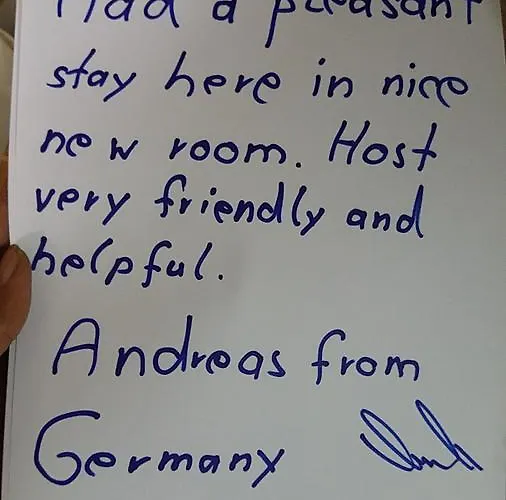 Had a pleasant
stay here in nice
new room. Host
very friendly and
helpful.
Andreas from
Germany